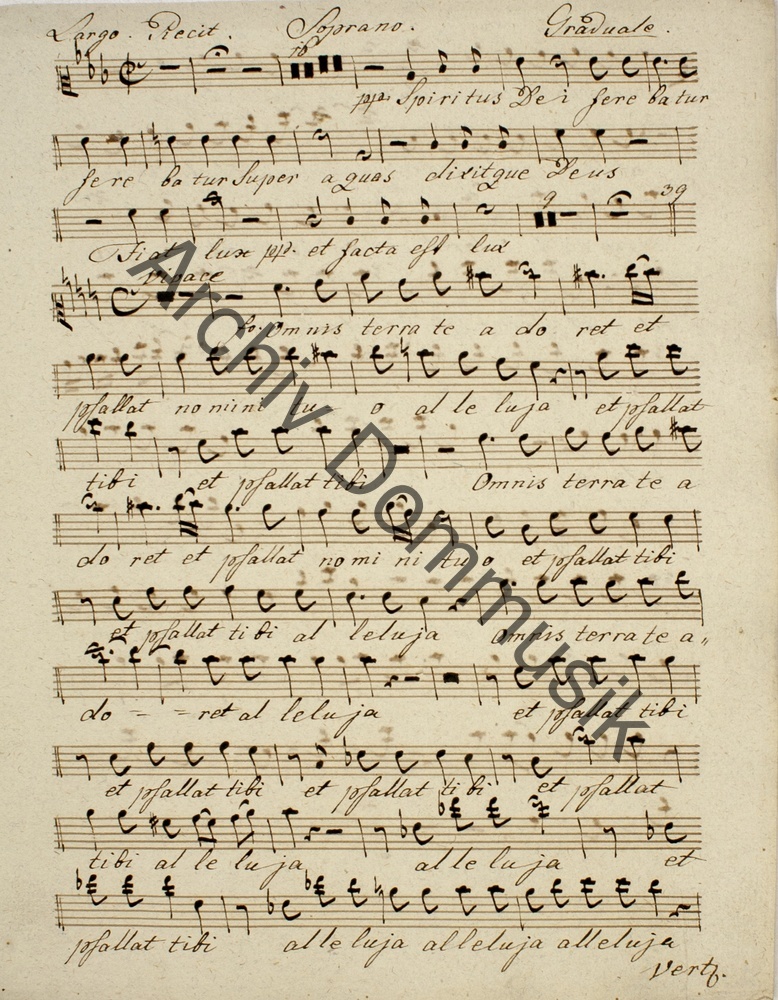 Largo. Recit. Soprano. Graduale.
16
pp. Spiritus Dei fere batur
fere batur super aquas dixitque Deus
9 39
Fiat lux pp. et facta est lux
vivace
fo. Omnis terra te a do ret et
psallat nomini tu o al le luja et psallat
tibi et psallat tibi Omnis terra te a
do ret et psallat nomi ni tuo et psallat tibi
et psallat ti bi al leluja omnis terra te a„
do - - ret al leluja et psallat tibi
et psallat tibi et psallat ti bi et psallat
tibi al le lu ja al le lu ja et
psallat tibi alle luja alleluja alleluja
Vert.
Archiv Dommusik